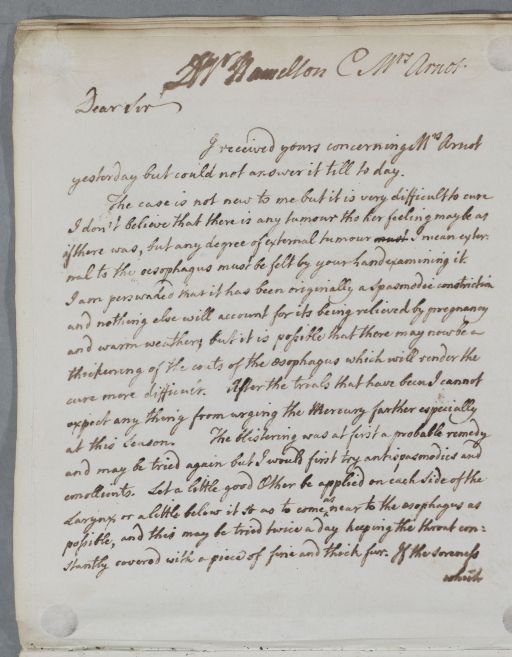 Dr Hamelton C Mrs Arnot.
Dear Sir
I received yours concerning Mrs Arnot
yesterday but could not answer it till to day.
The case is not new to me but it is very difficult to cure
I don't believe that there is any tumour tho her feeling may be as
if there was, but any degree of external tumour must I mean exter
nal to the oesophagus must be felt by your hand examining it.
I am perswaded that it has been originally a spasmodic constriction
and nothing else will account for its being relieved by pregnancy
and warm weather; but it is possible that there may now be a
thickening of the coats of the oesophagus which will render the
cure more difficult. After the trials that have been I cannot
expect any thing from urging the Mercury farther especially
at this season. The blistering was at first a probable remedy
and may be tried again but I would first try antispasmodics and
emollients. Let a little good Æther be applied on each side of the
Larynx or a little below it so as to come as near to the esophagus as
possible, and this may be tried twice a day keeping the throat con=
stantly covered with a piece of fine and thick fur. If the soreness
which